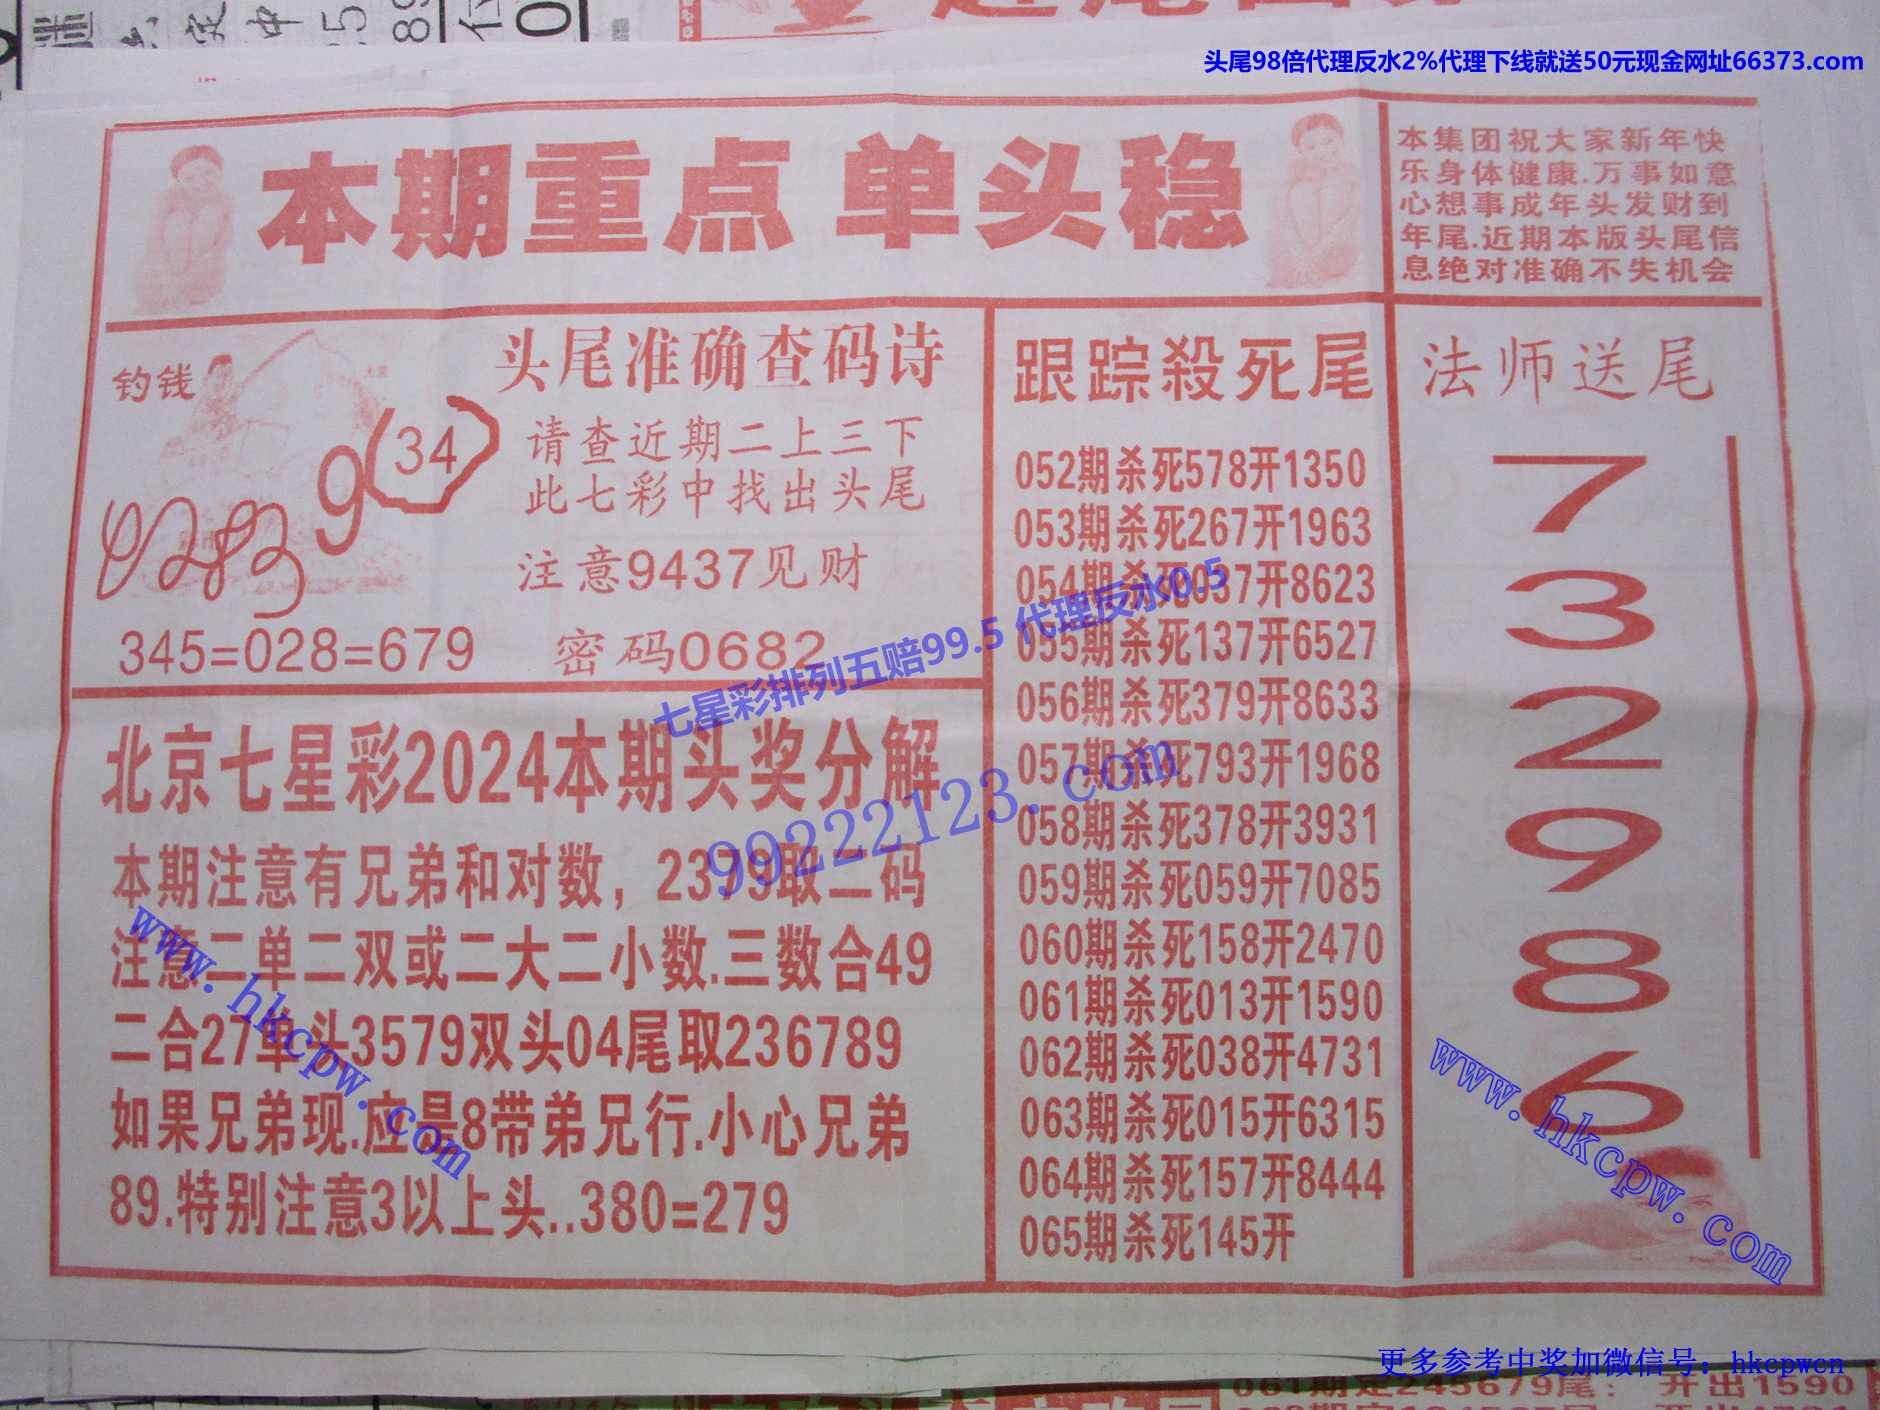 头尾98倍代理反水2%代理下线就送50元现金网址66373.com
本期重点 单头稳
本集团祝大家新年快
乐身体健康.万事如意
心想事成年头发财到
年尾.近期本版头尾信
息绝对准确不失机会
钓钱
9
34
头尾准确查码诗
请查近期二上三下
此七彩中找出头尾
注意9437见财
345=028=679
密码0682
跟踪殺死尾
052期杀死578开1350
053期杀死267开1963
054期杀死037开8623
055期杀死137开6527
056期杀死379开8633
057期杀死793开1968
058期杀死378开3931
059期杀死059开7085
060期杀死158开2470
061期杀死013开1590
062期杀死038开4731
063期杀死015开6315
064期杀死157开8444
065期杀死145开
法师送尾
7
3
2
9
8
6
北京七星彩2024本期头奖分解
本期注意有兄弟和对数，2379取二码
注意二单二双或二大二小数.三数合49
二合27单头3579双头04尾取236789
如果兄弟现.应是8带弟兄行.小心兄弟
89.特别注意3以上头..380=279
七星彩排列五赔99.5 代理反水0.5
99222123.com
www.hkcpw.com
www.hkcpw.com
更多参考中奖加微信号：hkcpwcn
061期定245679尾： 开出1590